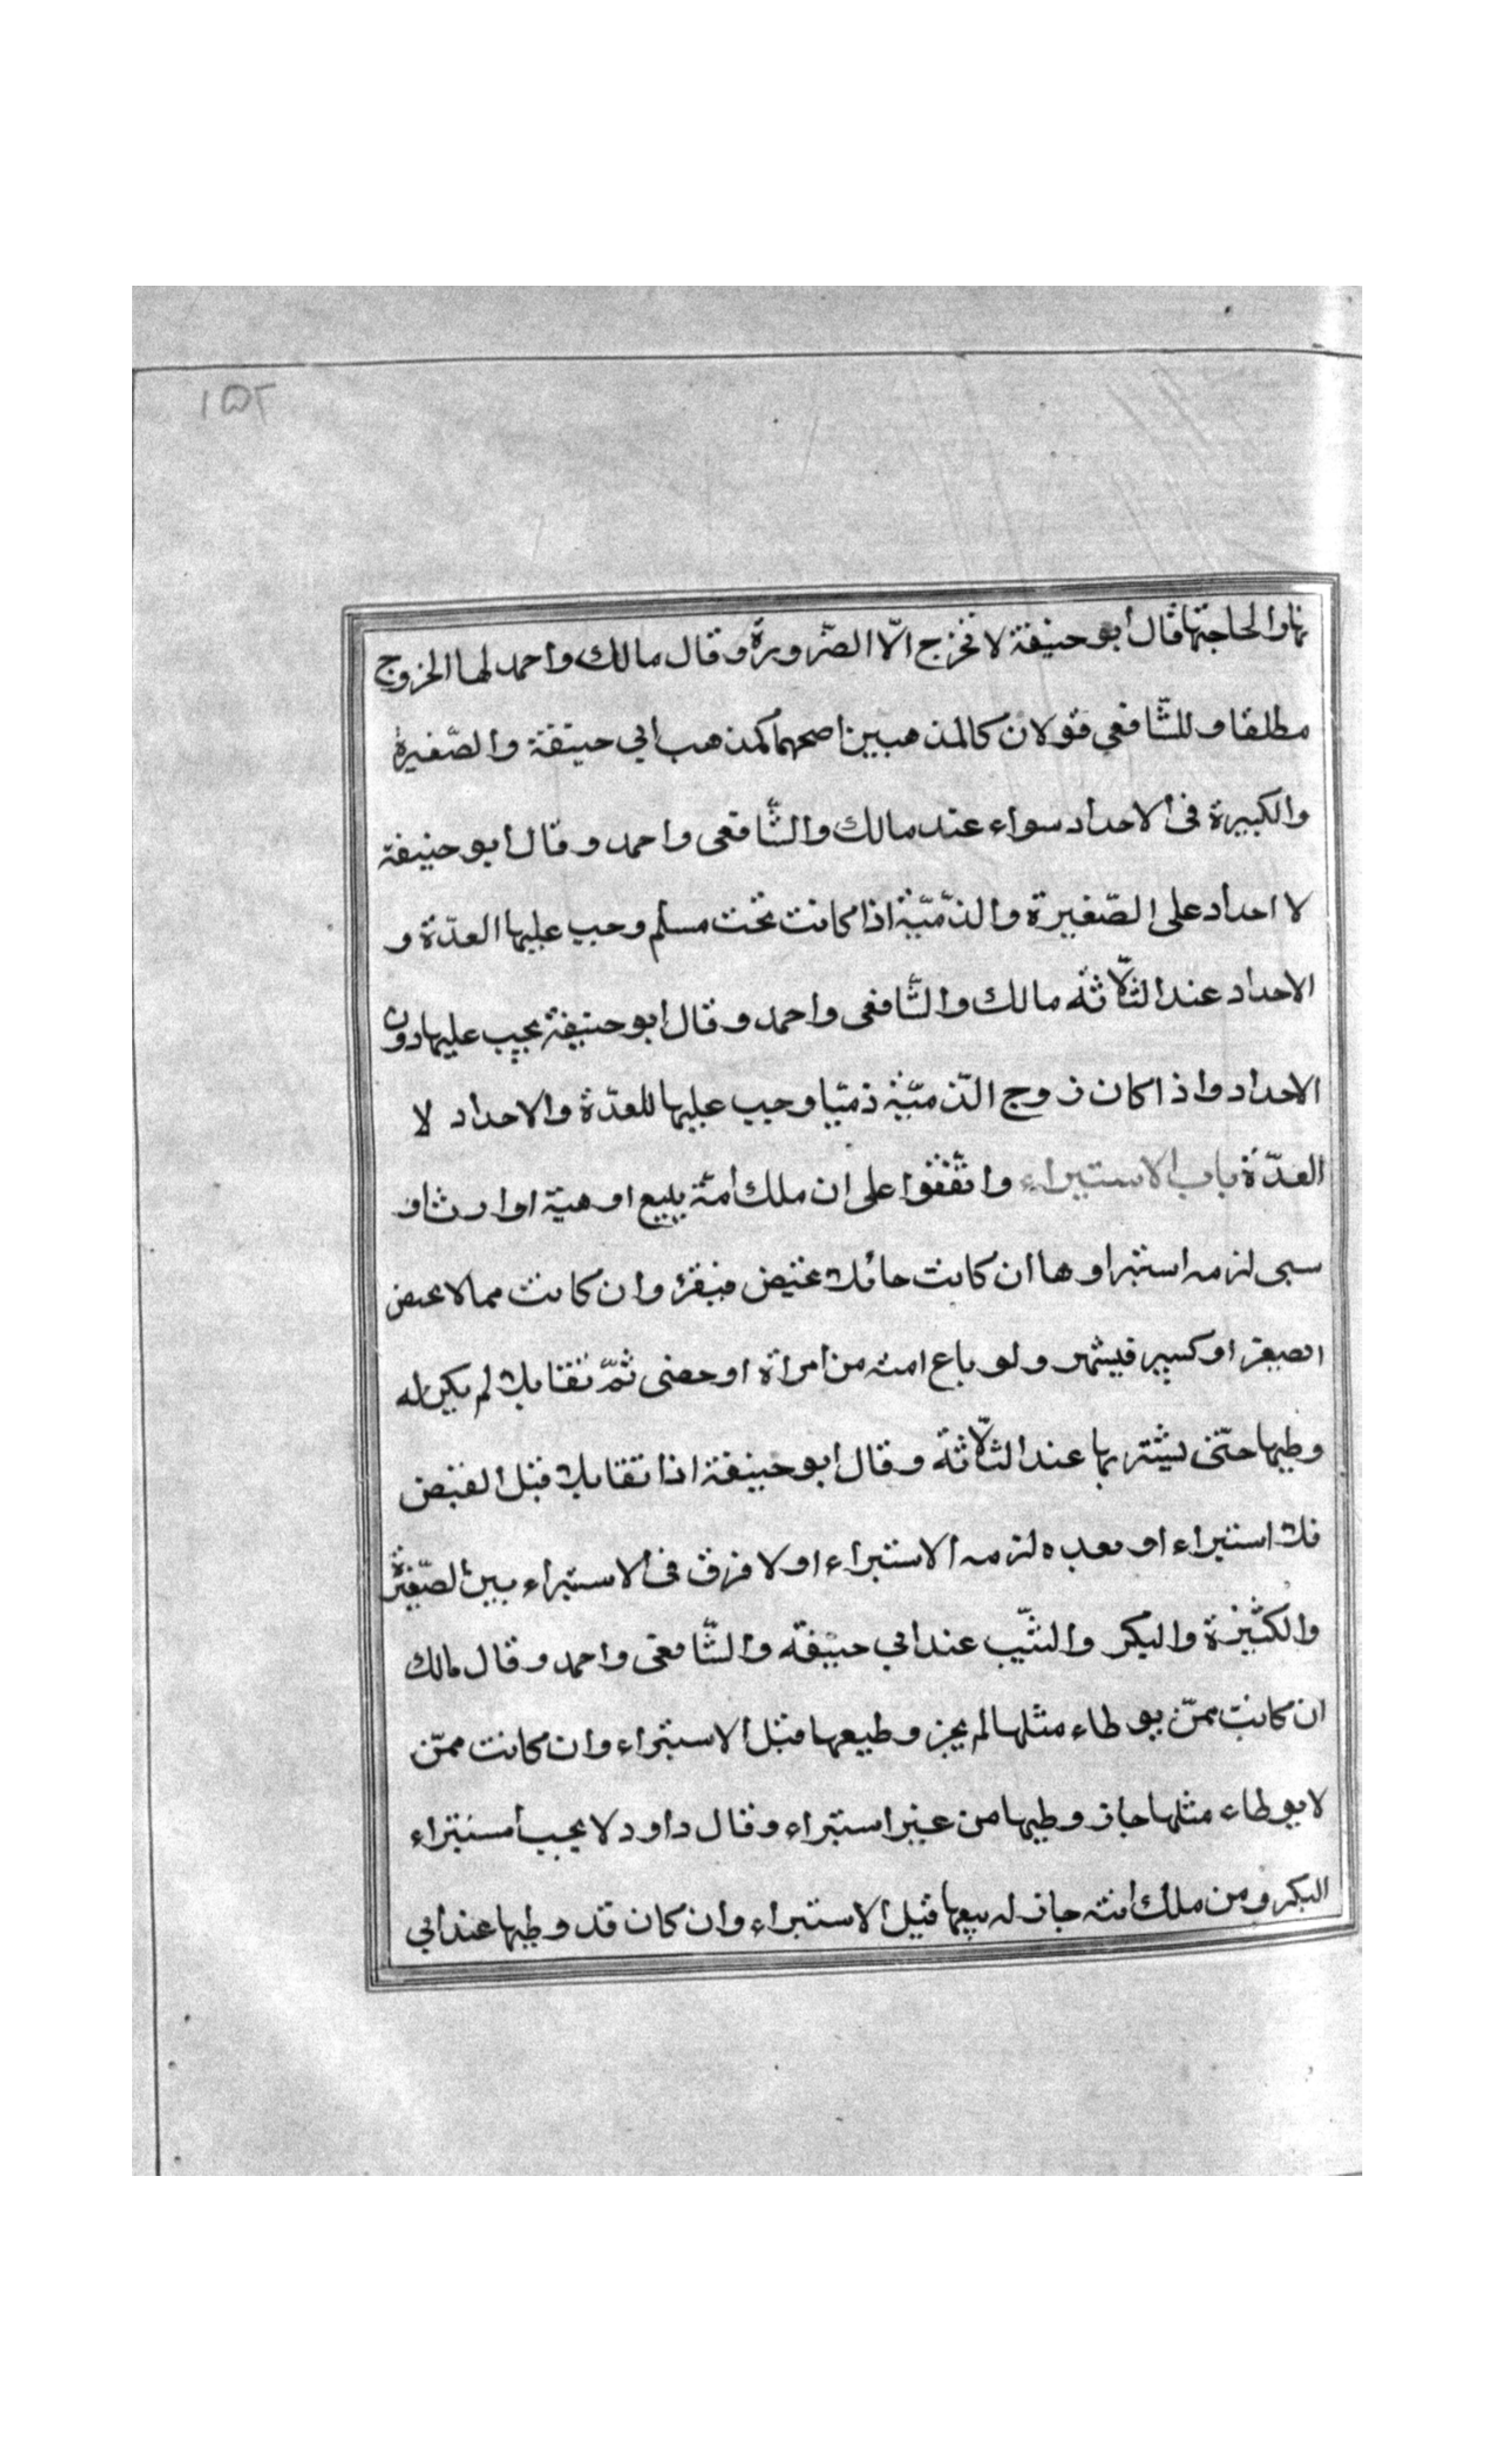 ١٥٢
نهارا لحاجتها قال أبو حنيفة لا تخرج الّا الضّرورة وقال مالك واحمد لها الخروج
مطلقا وللشّافعي قولان كالمذهبين اصحهما كمذهب ابي حنيفة والصّغيرة
والكبيرة فى الاحداد سواء عند مالك والشّافعى واحمد وقال ابو حنيفة
لا احداد على الصّغيرة والذمّيّة اذا كانت تحت مسلم وجب عليها العدّة و
الاحداد عند الثّلاثة مالك والشّافعى واحمد وقال ابو حنيفة يجب عليها دون
الاحداد واذا كان زوج الذّميّة ذميّا وجب عليها للعدّة والاحداد لا
العدّة باب الاستبراء واتّفقوا على ان ملك أمة ببيع او هبة او ارث او
سبى لزمه استبراوها ان كانت حائلا تحيض فبقرء وان كانت مما لا تحيض
الصغر او كبير فيشهر ولو باع امته من امراة او خصى ثمّ تقايلا لم يكن له
وطيها حتّى يشتريها عند الثّلاثة وقال ابو حنيفة اذا تقايلا قبل القبض
فلا استبراء او بعده لزمه الاستبراء او لا فرق فى الاستبراء بين الصّغيرة
والكبيرة والبكر والثيّب عند ابي حنيفة والشّافعى واحمد وقال مالك
ان كانت ممّن يوطاء مثلها لم يجز وطيعها قبل الاستبراء وان كانت ممّن
لا يوطاء مثلها جاز وطيها من غير استبراء وقال داود لا يجب أستبراء
البكر ومن ملك أمته جاز له بيعها قبل الاستبراء وان كان قد وطيها عند ابي